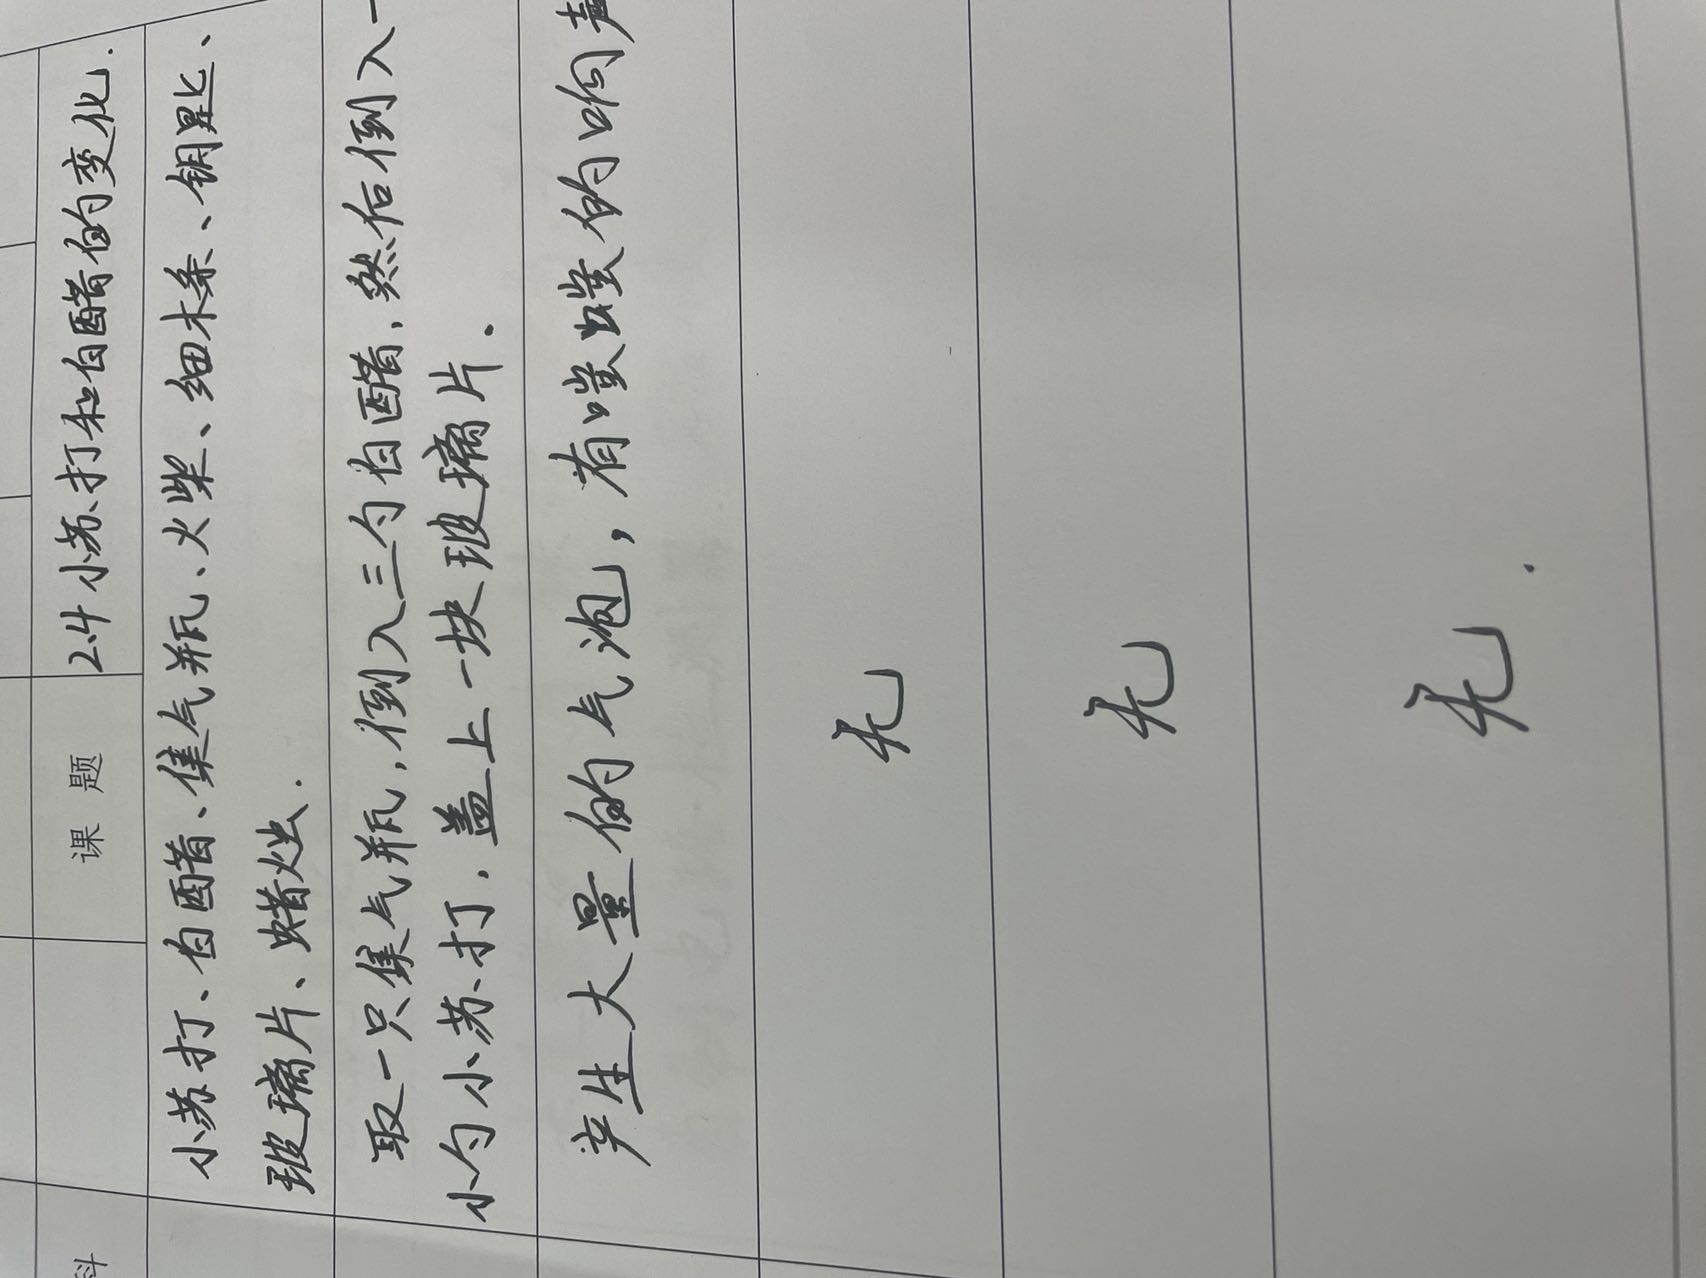 科
课 题
2.4 小苏打和白醋的变化.
小苏打、白醋、集气瓶、火柴、细木条、钥匙、
玻璃片、蜡烛.
取一只集气瓶,倒入三勺白醋,然后倒入一
小勺小苏打,盖上一块玻璃片.
产生大量的气泡,有嗤嗤的响声
无
无
无.